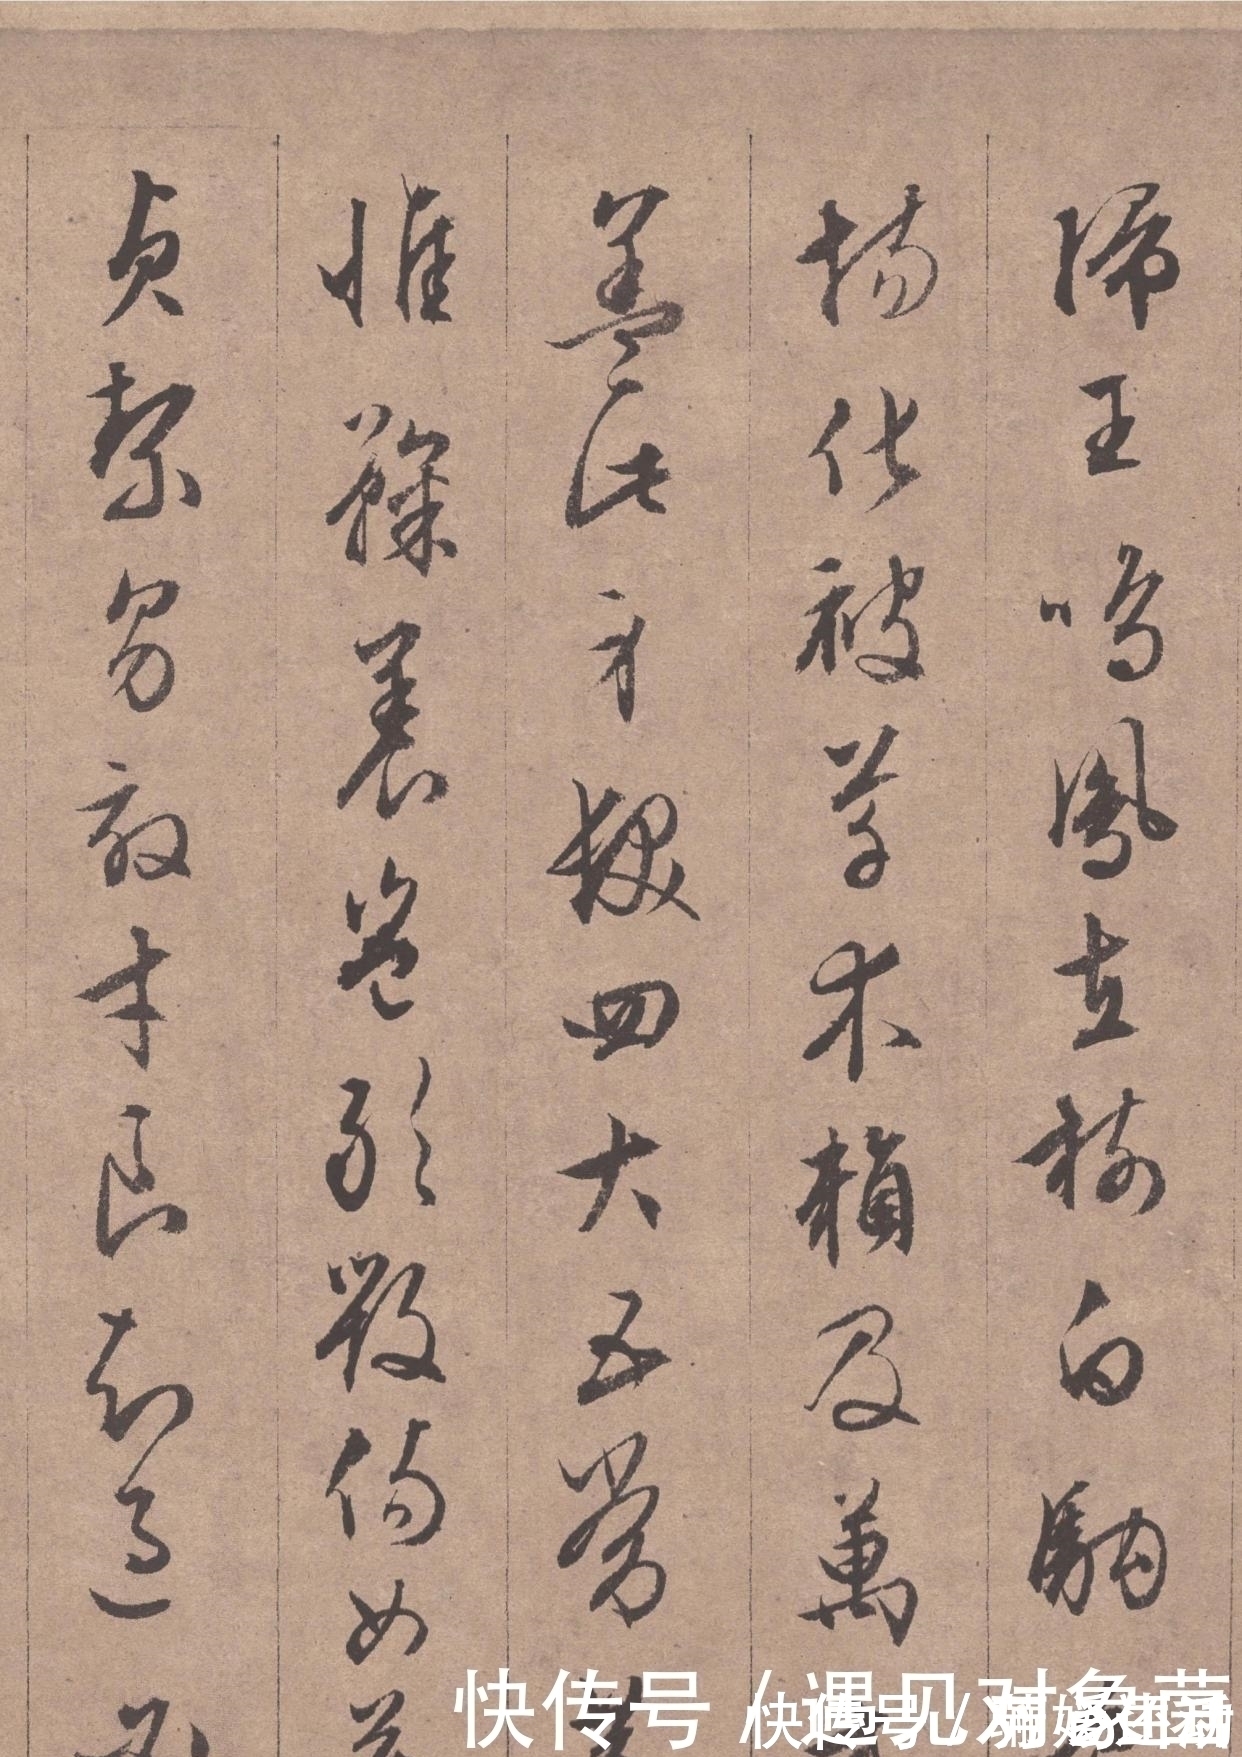 歸王鳴鳳在樹白駒
場化被草木賴及萬
蓋此身髮四大五常
惟鞠養豈敢毀傷女
貞絜男效才良知過
快传号 / 遇见对象菌
快传号 /